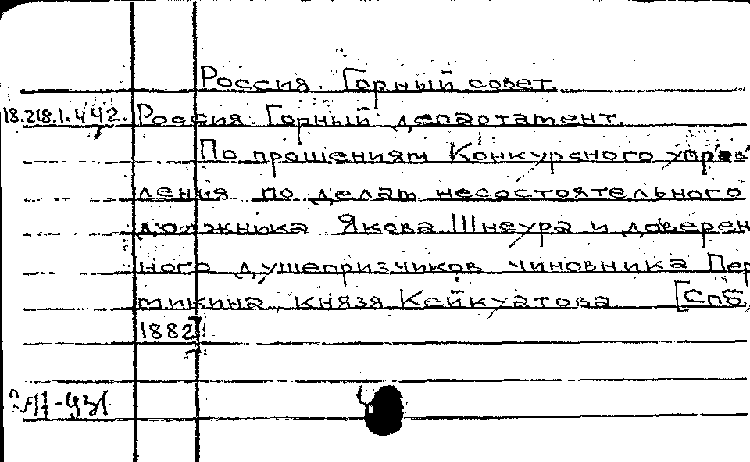 Россия. Горный совет.
18.218.1.442. Россия. Горный департамент.
По прошениям Конкурсного управ
ления по делам несостоятельного
должника Якова Шнеура и доверен
ного душеприказчиков чиновника Пер
микина, князя Кейкуатова [Спб,
1882].